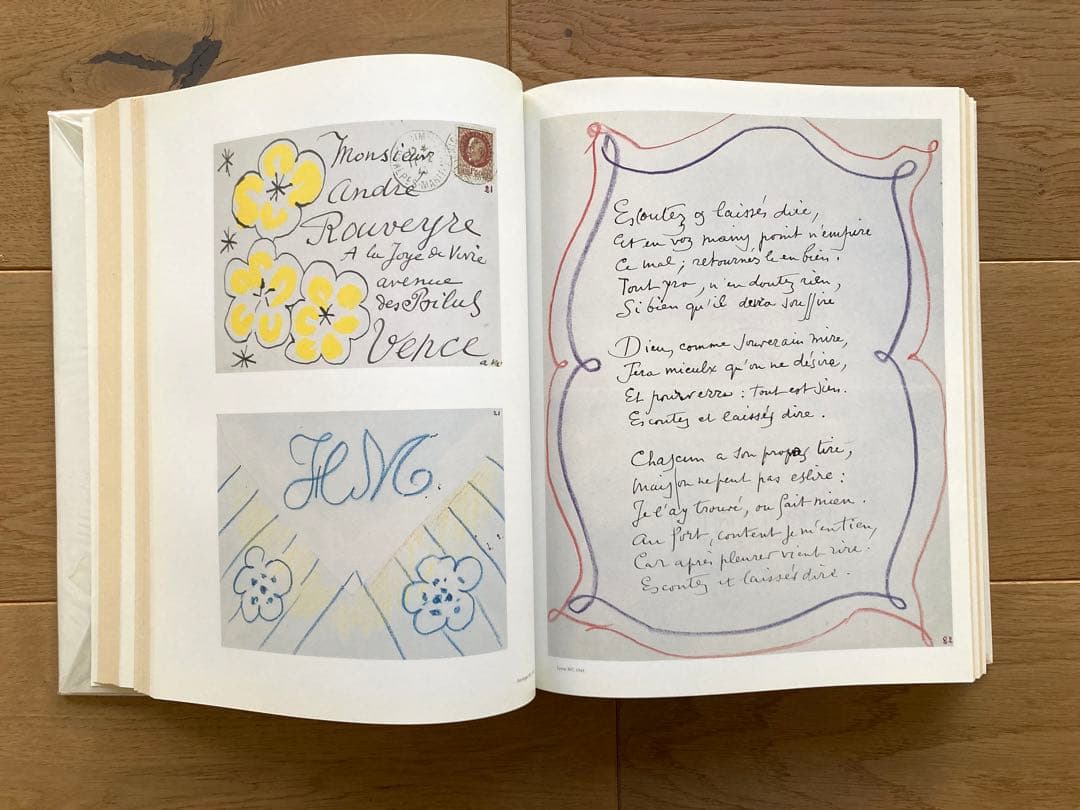 Monsieur
André
Rouveyre
A la Joye de Vivre
avenue
des Poilus
Vence
21
HM
21
Escoutez et laissés dire,
Et en voz mains point n'empire
Ce mal; retournés le en bien.
Tout yra, n'en doutez rien,
Si bien qu'il devra souffire
Dieu, comme souverain mire,
Fera mieulx qu'on ne désire,
Et pourverra : tout est sien.
Escoutez et laissés dire.
Chascun a son propos tire,
Mais on ne peut pas eslire :
Je l'ay trouvé, ou fait mien.
Au fort, content je m'entien,
Car après pleurer vient rire.
Escoutez et laissés dire.
82